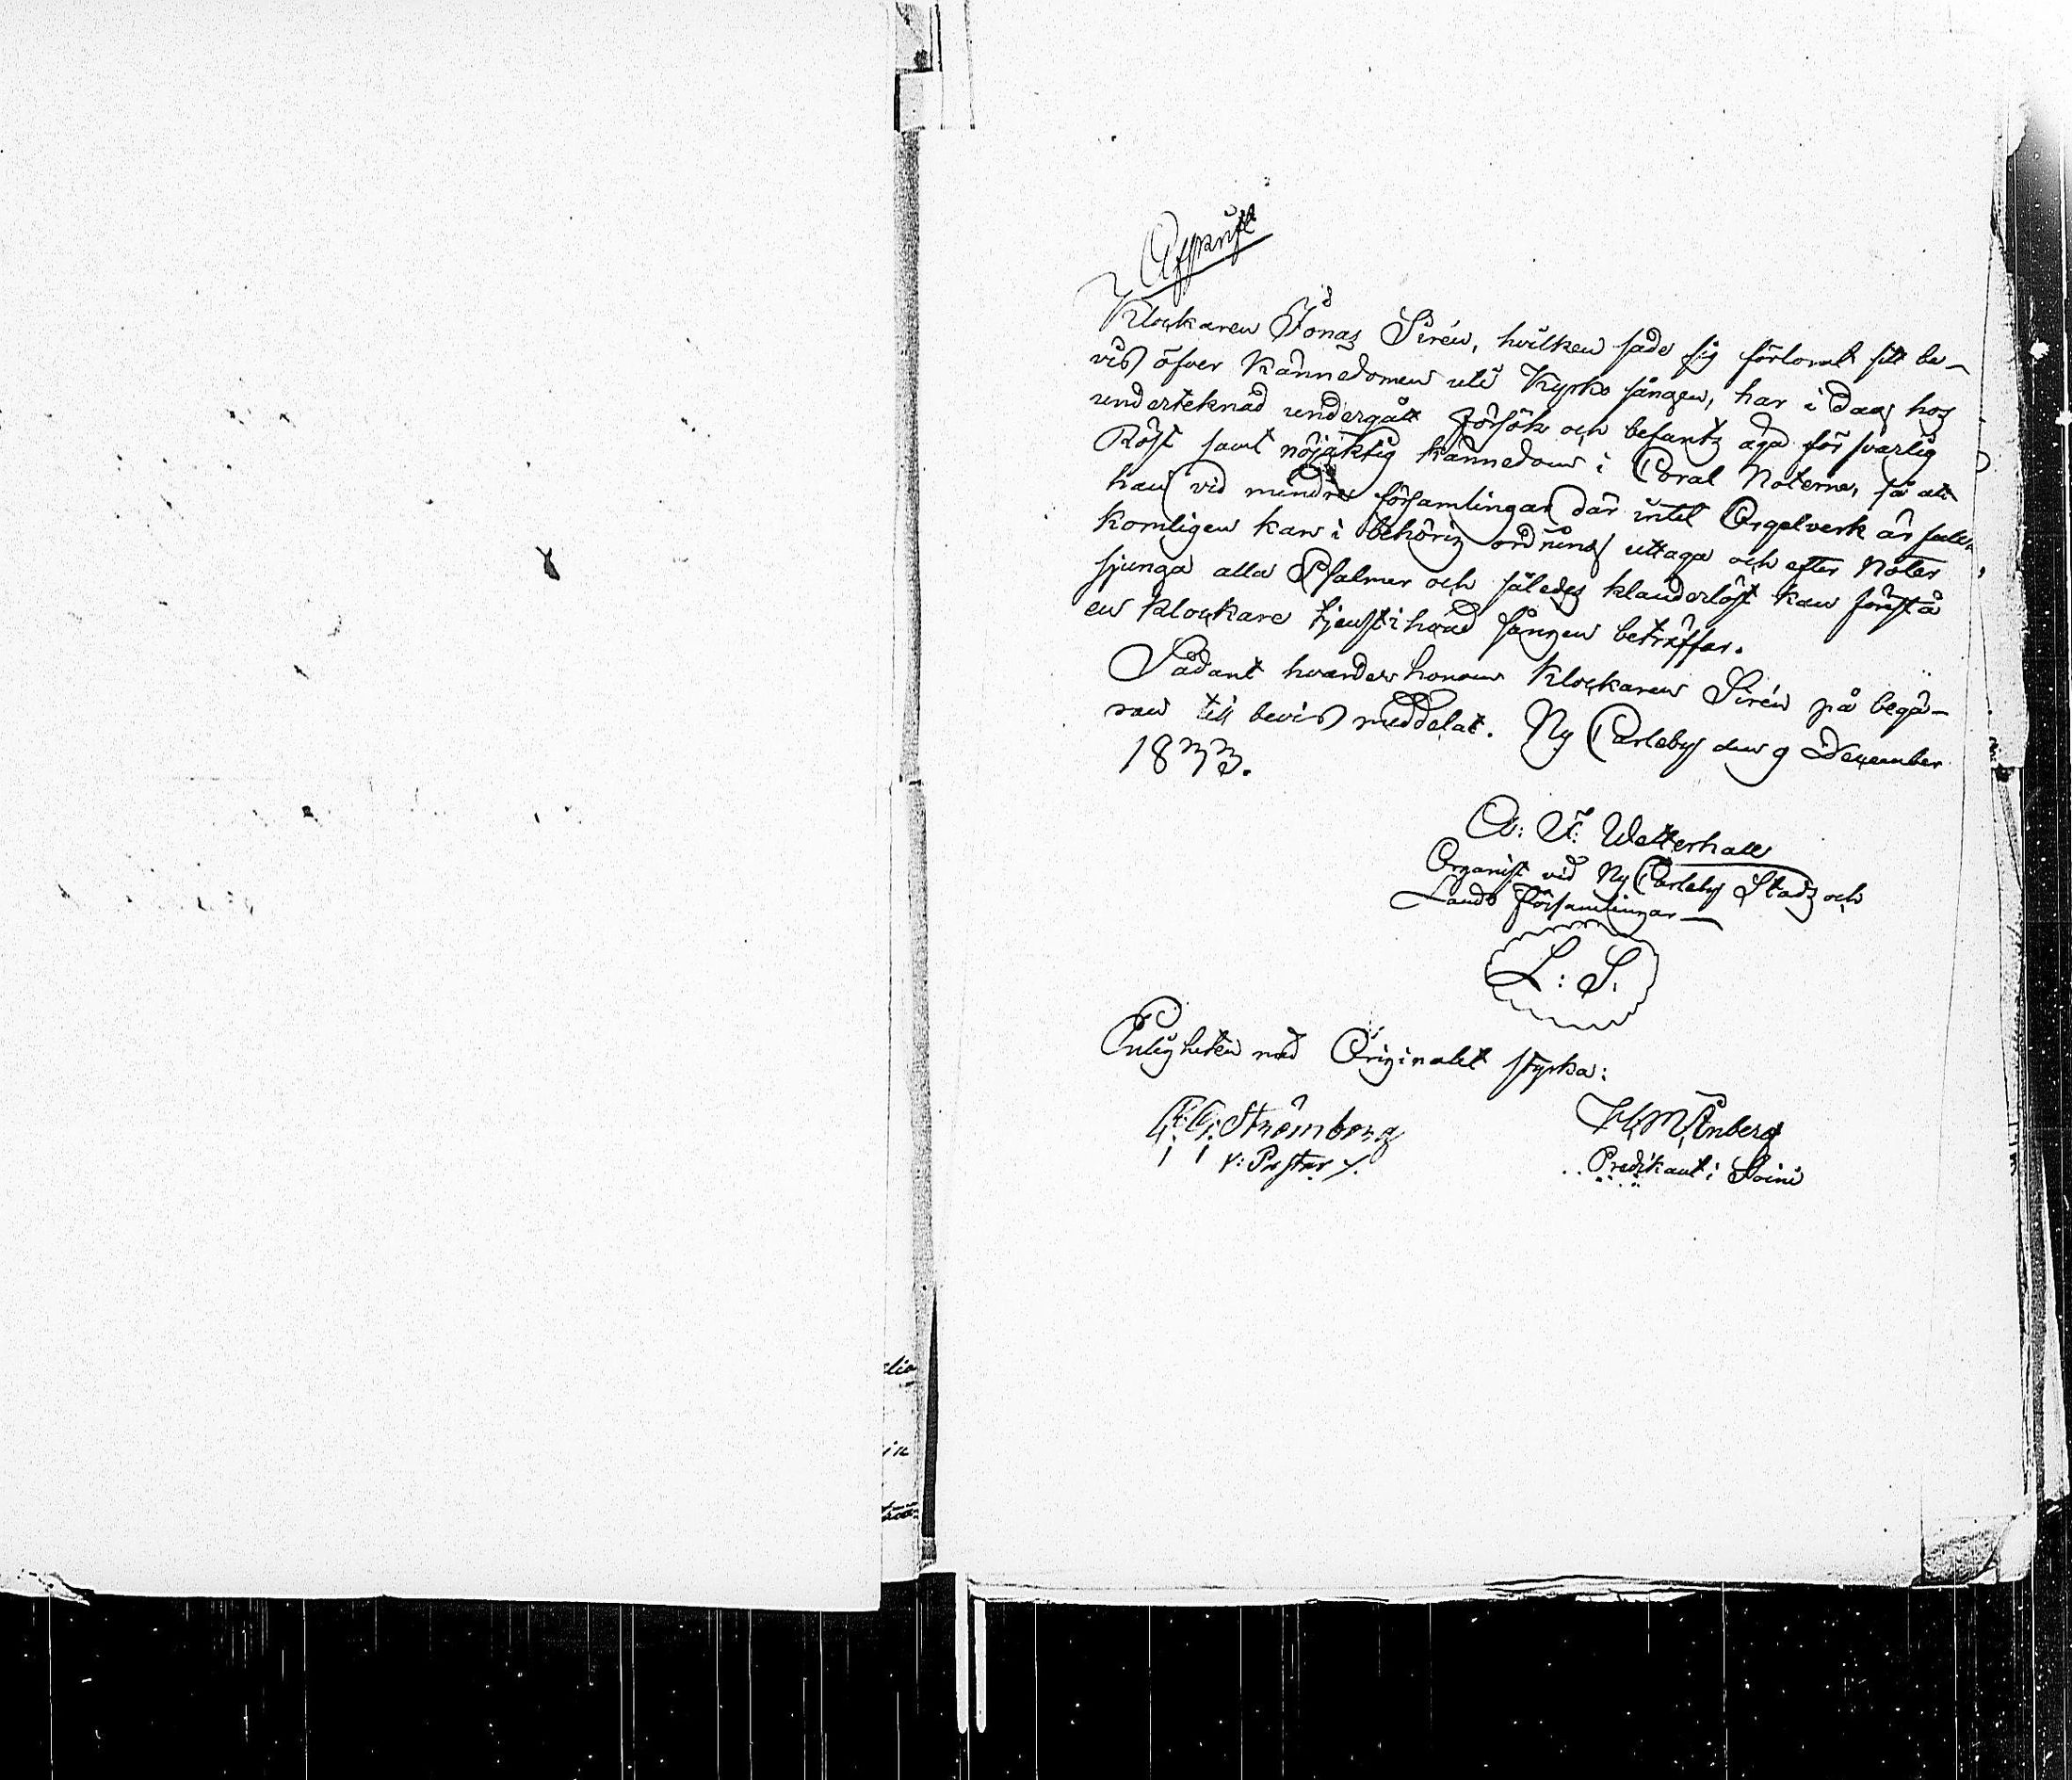 Afskrift
Klockaren Jonas Sirén, hvilken sade sig förlorat sitt be-
vis öfver kännedomen uti Kyrko sången, har i dag hos
underteknad undergått Försök och befants äga försvarlig
Röst samt nöjaktig kännedom i Coral Noterne, så att
han vid mindre församlingar där intet Orgelverk är
komligen kan i behörig ordning uttaga och efter Noter
sjunga alla Psalmer och således klanderlöst kan förestå
en Klockare tjenst i hvad sången beträffar.
Sådant hvarder honom Klockaren Sirén på begä-
ran till bevis meddelat. Ny Carleby den 9 December
1833.
A: F. Wetterhall
Organist vid Ny Carleby Stads och
Lands Församlingar
L: S.
Enligheten med Originalet styrka:
Strömborg
v: Pastor
Enberg
Predikant i Soini